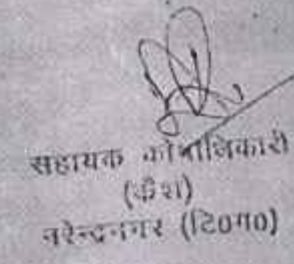 सहायक कोषाधिकारी
(कैश)
नरेन्द्रनगर (टि0ग0)